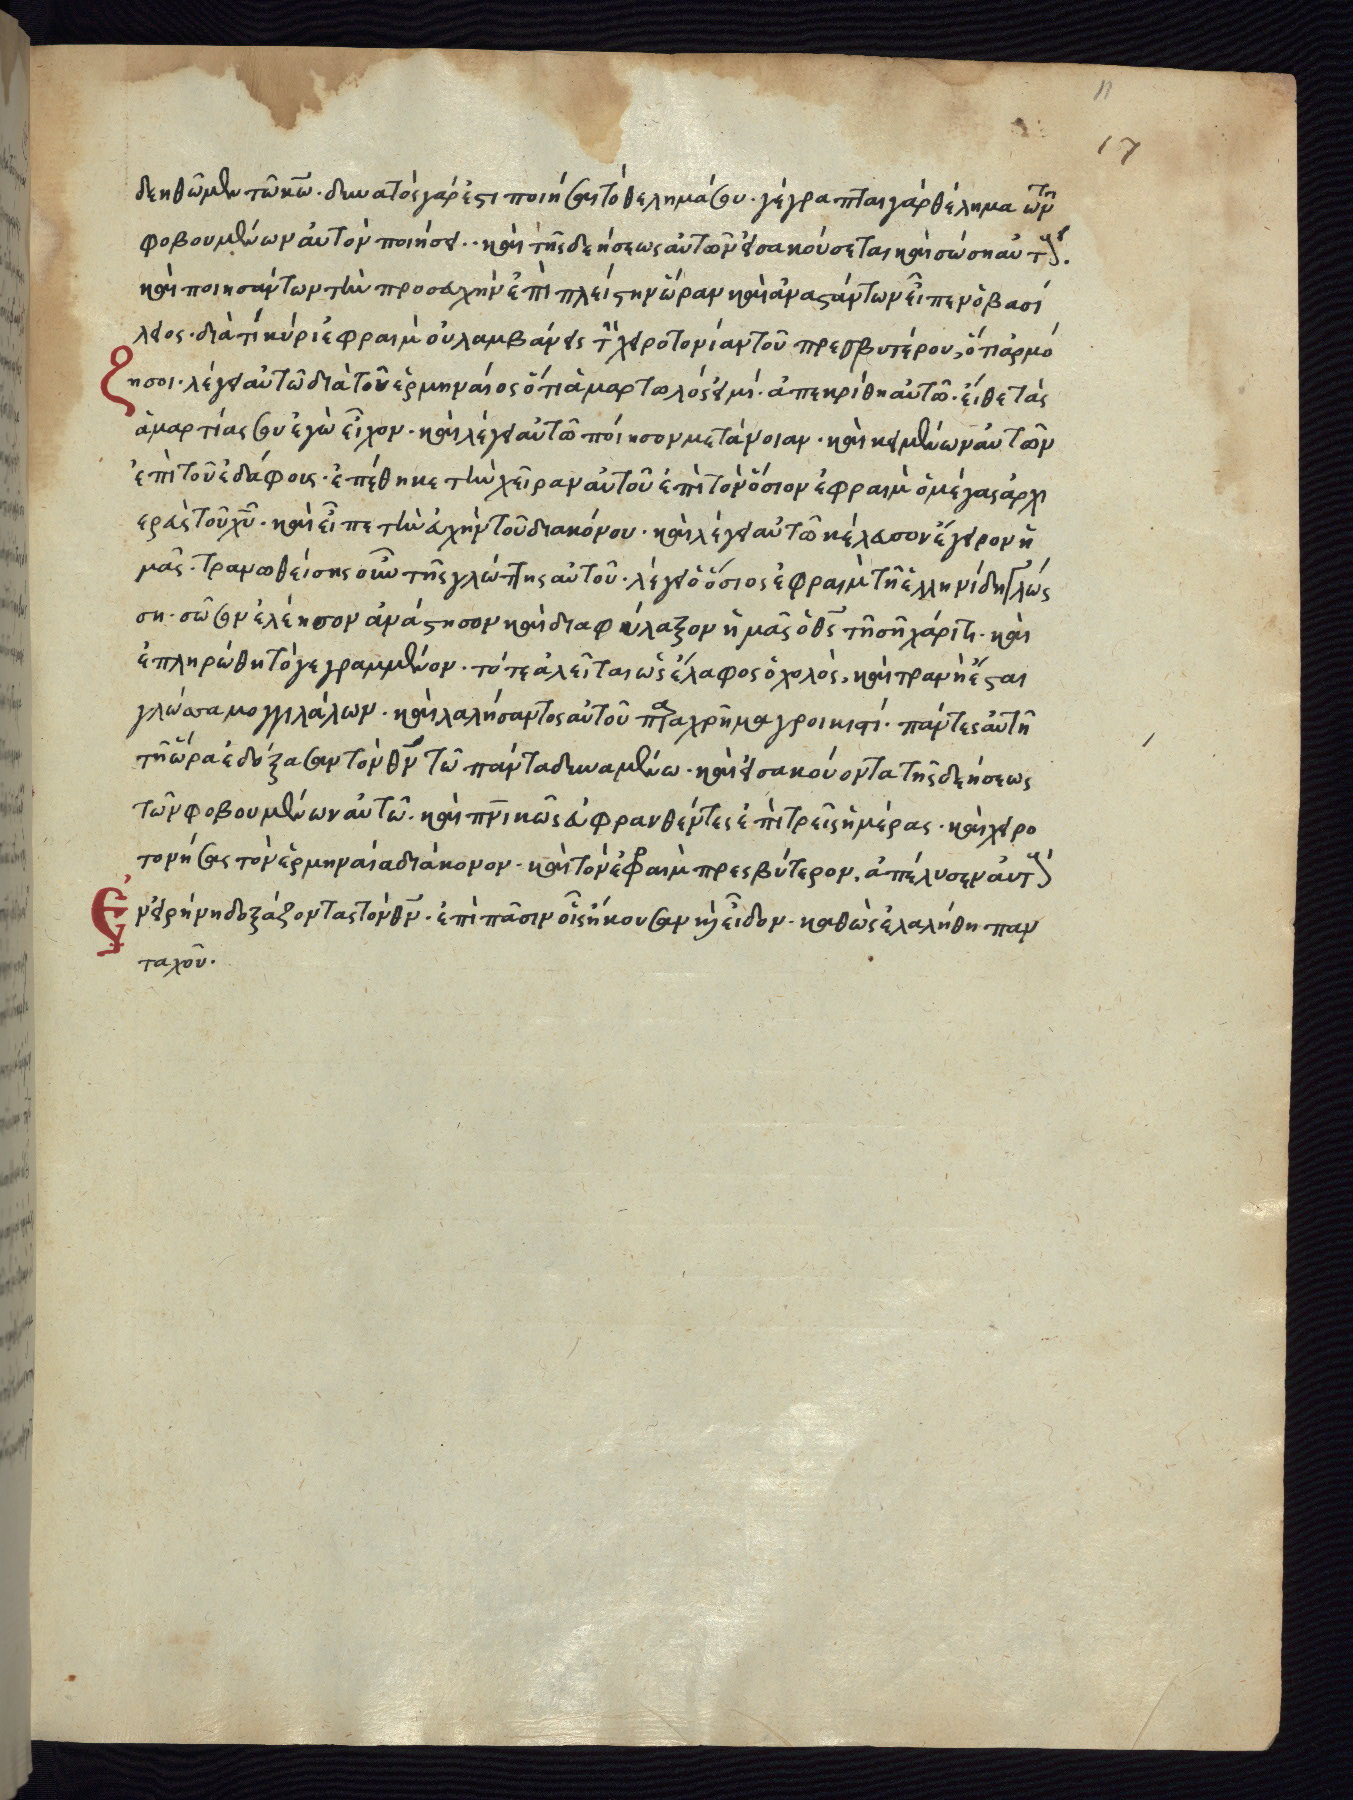 17
δεηθῶμεν τῶ κῶ. δυνατὸς γάρ ἐστι ποιῆσαι τὸ θέλημά σου. γέγραπται γὰρ θέλημα τῶν
φοβουμένων αὐτὸν ποιήσει. καὶ τῆς δεήσεως αὐτῶν εἰσακούσεται καὶ σώση αὐτούς.
καὶ ποιησάντων τὴν προσευχὴν ἐπὶ πλείστην ὥραν καὶ ἀναστάντων εἶπεν ὁ βασί
λειος. διὰ τί κύρι ἐφραιμ οὐ λαμβάνεις τὴν χειροτονίαν τοῦ πρεσβυτέρου, ὅτι ἁρμό
ζησοι. λέγει αὐτῶ διὰ τοῦ ἑρμηναίος ὅτι ἁμαρτωλός εἰμί. ἀπεκρίθη αὐτῶ. εἴθε τὰς
ἁμαρτίας σου ἐγὼ εἶχον. καὶ λέγει αὐτῶ ποίησον μετάνοιαν. καὶ κειμένων αὐτῶν
ἐπὶ τοῦ ἐδάφους. ἐπέθηκε τὴν χεῖραν αὐτοῦ ἐπὶ τὸν ὅσιον ἐφραιμ ὁ μέγας ἀρχι
ερεὺς τοῦ χυ. καὶ εἶπε τὴν εὐχὴν τοῦ διακόνου. καὶ λέγει αὐτῶ κέλευσον ἔγειρον ἡ
μᾶς. τρανωθείσης οὖν τῆς γλώττης αὐτοῦ. λέγει ὁ ὅσιος ἐφραιμ τῆ ἑλληνίδη γλώσ
ση. σῶσον ἐλέησον ἀνάστησον καὶ διαφύλαξον ἡμᾶς ὁ θς τῆ σῆ χάριτι. καὶ
ἐπληρώθη τὸ γεγραμμένον. τότε ἁλεῖται ὡς ἔλαφος ὁ χολὸς, καὶ τρανὴ ἔσται
γλώσσα μογγιλάλων. καὶ λαλήσαντος αὐτοῦ παραχρῆμα γροικιστί. πάντες αὐτῆ
τῆ ὥρα ἐδόξασαν τὸν θν τῶ πάντα δυναμένω. καὶ εἰσακούοντα τῆς δεήσεως
τῶν φοβουμένων αὐτῶ. καὶ πνικῶς εὐφρανθέντες ἐπὶ τρεῖς ἡμέρας. καὶ χειρο
τονήσας τὸν ἑρμηναία διάκονον. καὶ τὸν ἐφραιμ πρεσβύτερον, ἀπέλυσεν αὐτούς
Ἐν εἰρήνη δοξάζοντας τὸν θν. ἐπὶ πᾶσιν οἷς ἤκουσαν καὶ εἶδον. καθὼς ἐλαλήθη παν
ταχοῦ.